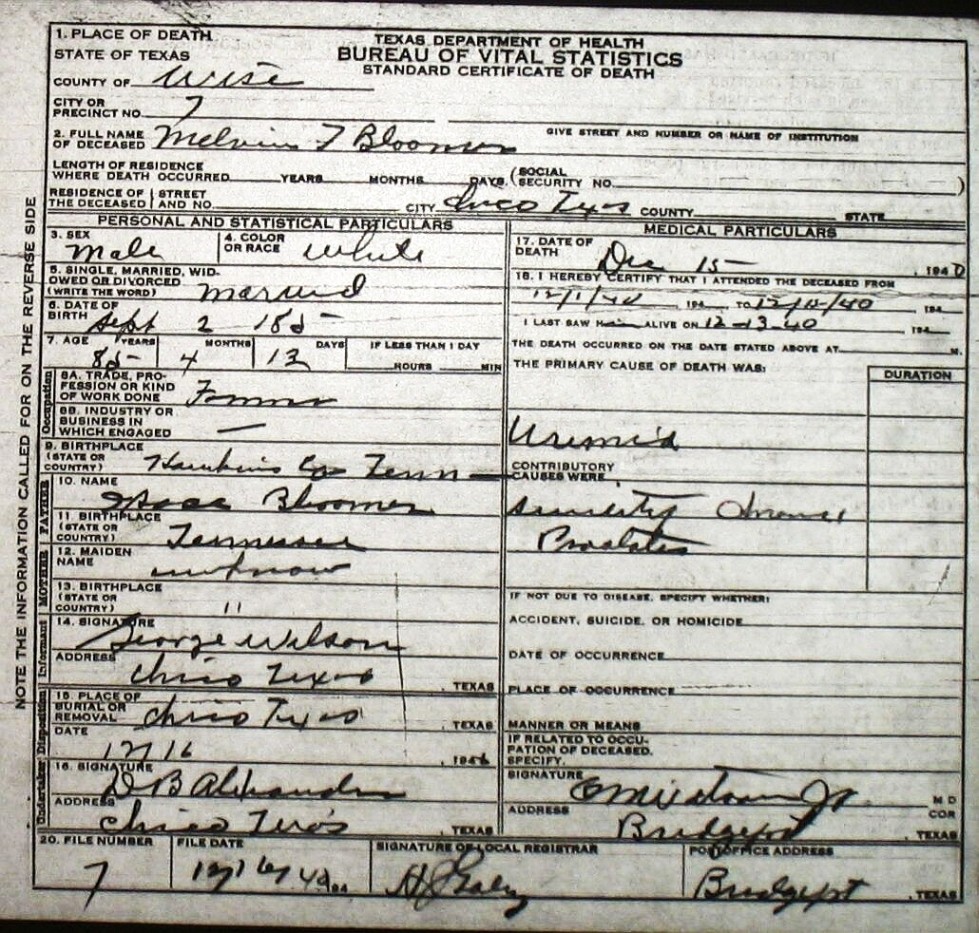 NOTE THE INFORMATION CALLED FOR ON THE REVERSE SIDE
TEXAS DEPARTMENT OF HEALTH
BUREAU OF VITAL STATISTICS
STANDARD CERTIFICATE OF DEATH
1. PLACE OF DEATH
STATE OF TEXAS
COUNTY OF Wise
CITY OR
PRECINCT NO. 7
GIVE STREET AND NUMBER OR NAME OF INSTITUTION
2. FULL NAME
OF DECEASED Melvin F Bloomer
LENGTH OF RESIDENCE
WHERE DEATH OCCURRED YEARS MONTHS DAYS. (SOCIAL
SECURITY NO. )
RESIDENCE OF | STREET
THE DECEASED | AND NO. CITY Chico Texas COUNTY STATE
PERSONAL AND STATISTICAL PARTICULARS
3. SEX
Male
4. COLOR
OR RACE White
5. SINGLE, MARRIED, WID-
OWED OR DIVORCED
(WRITE THE WORD) Married
6. DATE OF
BIRTH Sept 2 185
7. AGE YEARS MONTHS DAYS IF LESS THAN 1 DAY
85 4 13 HOURS MIN
Occupation
8A. TRADE, PRO-
FESSION OR KIND
OF WORK DONE Farmer
8B. INDUSTRY OR
BUSINESS IN
WHICH ENGAGED —
9. BIRTHPLACE
(STATE OR
COUNTRY) Hawkins Co Tenn
FATHER
10. NAME
Isaac Bloomer
11. BIRTHPLACE
(STATE OR
COUNTRY) Tennessee
MOTHER
12. MAIDEN
NAME unknow
13. BIRTHPLACE
(STATE OR
COUNTRY) "
Informant
14. SIGNATURE
George Wilson
ADDRESS
Chico Texas , TEXAS
Disposition
15. PLACE OF
BURIAL OR
REMOVAL Chico Texas , TEXAS
DATE
12 16 , 194
Undertaker
16. SIGNATURE
D B Alexander
ADDRESS
Chico Texas , TEXAS
MEDICAL PARTICULARS
17. DATE OF
DEATH Dec 15 , 1940
18. I HEREBY CERTIFY THAT I ATTENDED THE DECEASED FROM
12/1/40 , 194 TO 12/ /40 , 194
I LAST SAW H ALIVE ON 12-13-40 , 194
THE DEATH OCCURRED ON THE DATE STATED ABOVE AT M.
THE PRIMARY CAUSE OF DEATH WAS:
DURATION
Uremia
CONTRIBUTORY
CAUSES WERE
Senility
IF NOT DUE TO DISEASE, SPECIFY WHETHER:
ACCIDENT, SUICIDE, OR HOMICIDE
DATE OF OCCURRENCE
PLACE OF OCCURRENCE
MANNER OR MEANS
IF RELATED TO OCCU-
PATION OF DECEASED,
SPECIFY.
SIGNATURE M D
COR
ADDRESS Bridgeport , TEXAS
20. FILE NUMBER
7
FILE DATE
12/16/40 , 194
SIGNATURE OF LOCAL REGISTRAR
POSTOFFICE ADDRESS
Bridgept , TEXAS